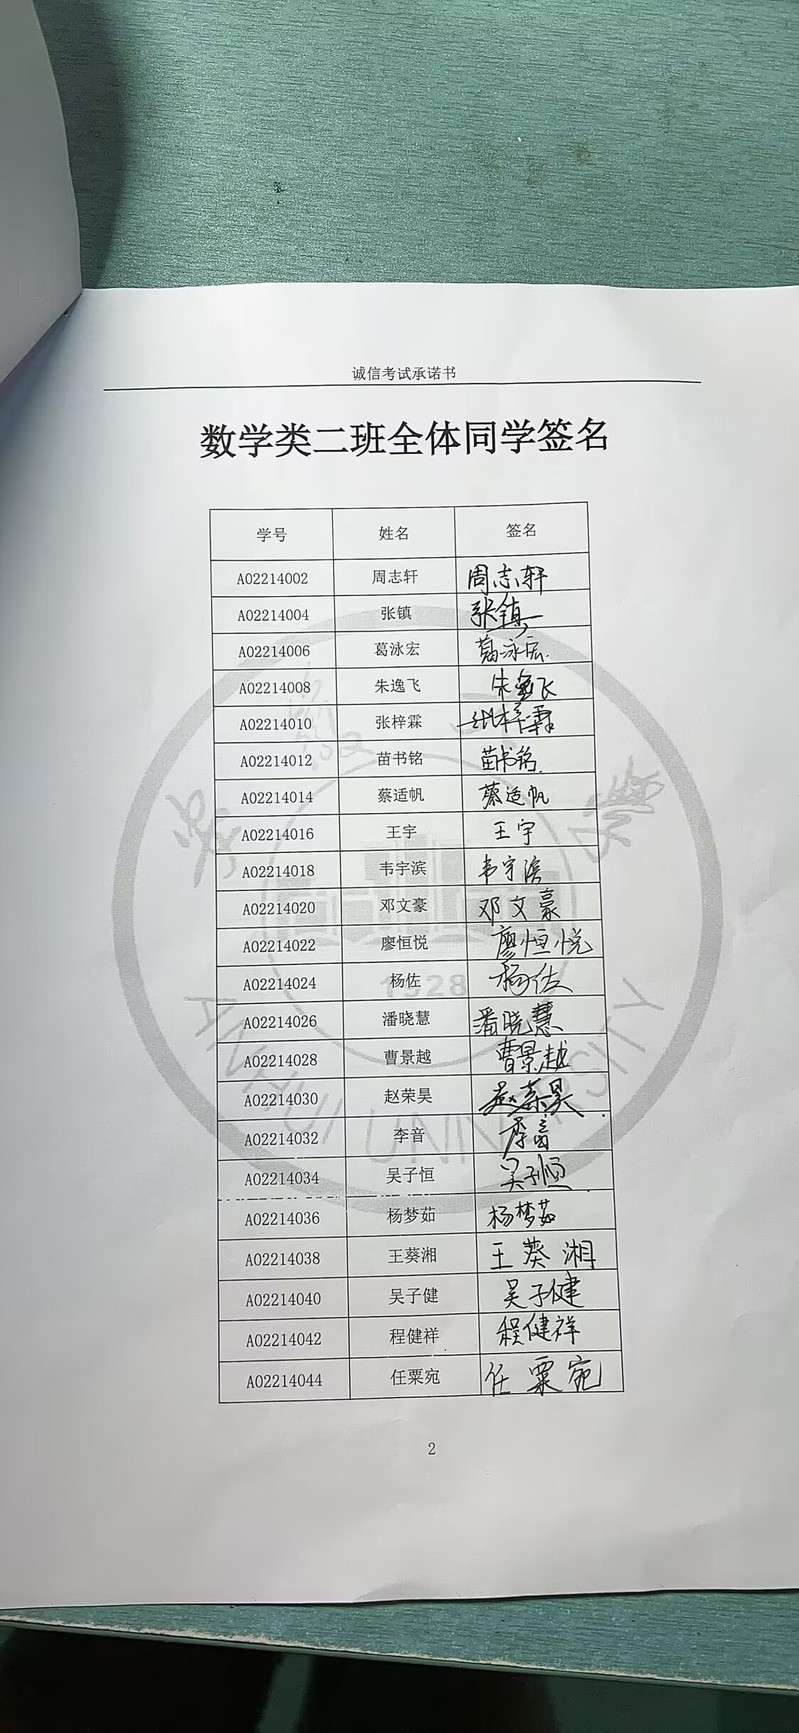 诚信考试承诺书
数学类二班全体同学签名
学号 姓名 签名
A02214002 周志轩 周志轩
A02214004 张镇 张镇
A02214006 葛泳宏 葛泳宏
A02214008 朱逸飞 朱逸飞
A02214010 张梓霖 张梓霖
A02214012 苗书铭 苗书铭
A02214014 蔡适帆 蔡适帆
A02214016 王宇 王宇
A02214018 韦宇滨 韦宇滨
A02214020 邓文豪 邓文豪
A02214022 廖恒悦 廖恒悦
A02214024 杨佐 杨佐
A02214026 潘晓慧 潘晓慧
A02214028 曹景越 曹景越
A02214030 赵荣昊 赵荣昊
A02214032 李音 李音
A02214034 吴子恒 吴子恒
A02214036 杨梦茹 杨梦茹
A02214038 王葵湘 王葵湘
A02214040 吴子健 吴子健
A02214042 程健祥 程健祥
A02214044 任粟宛 任粟宛
1928
ANHUI UNIVERSITY
2